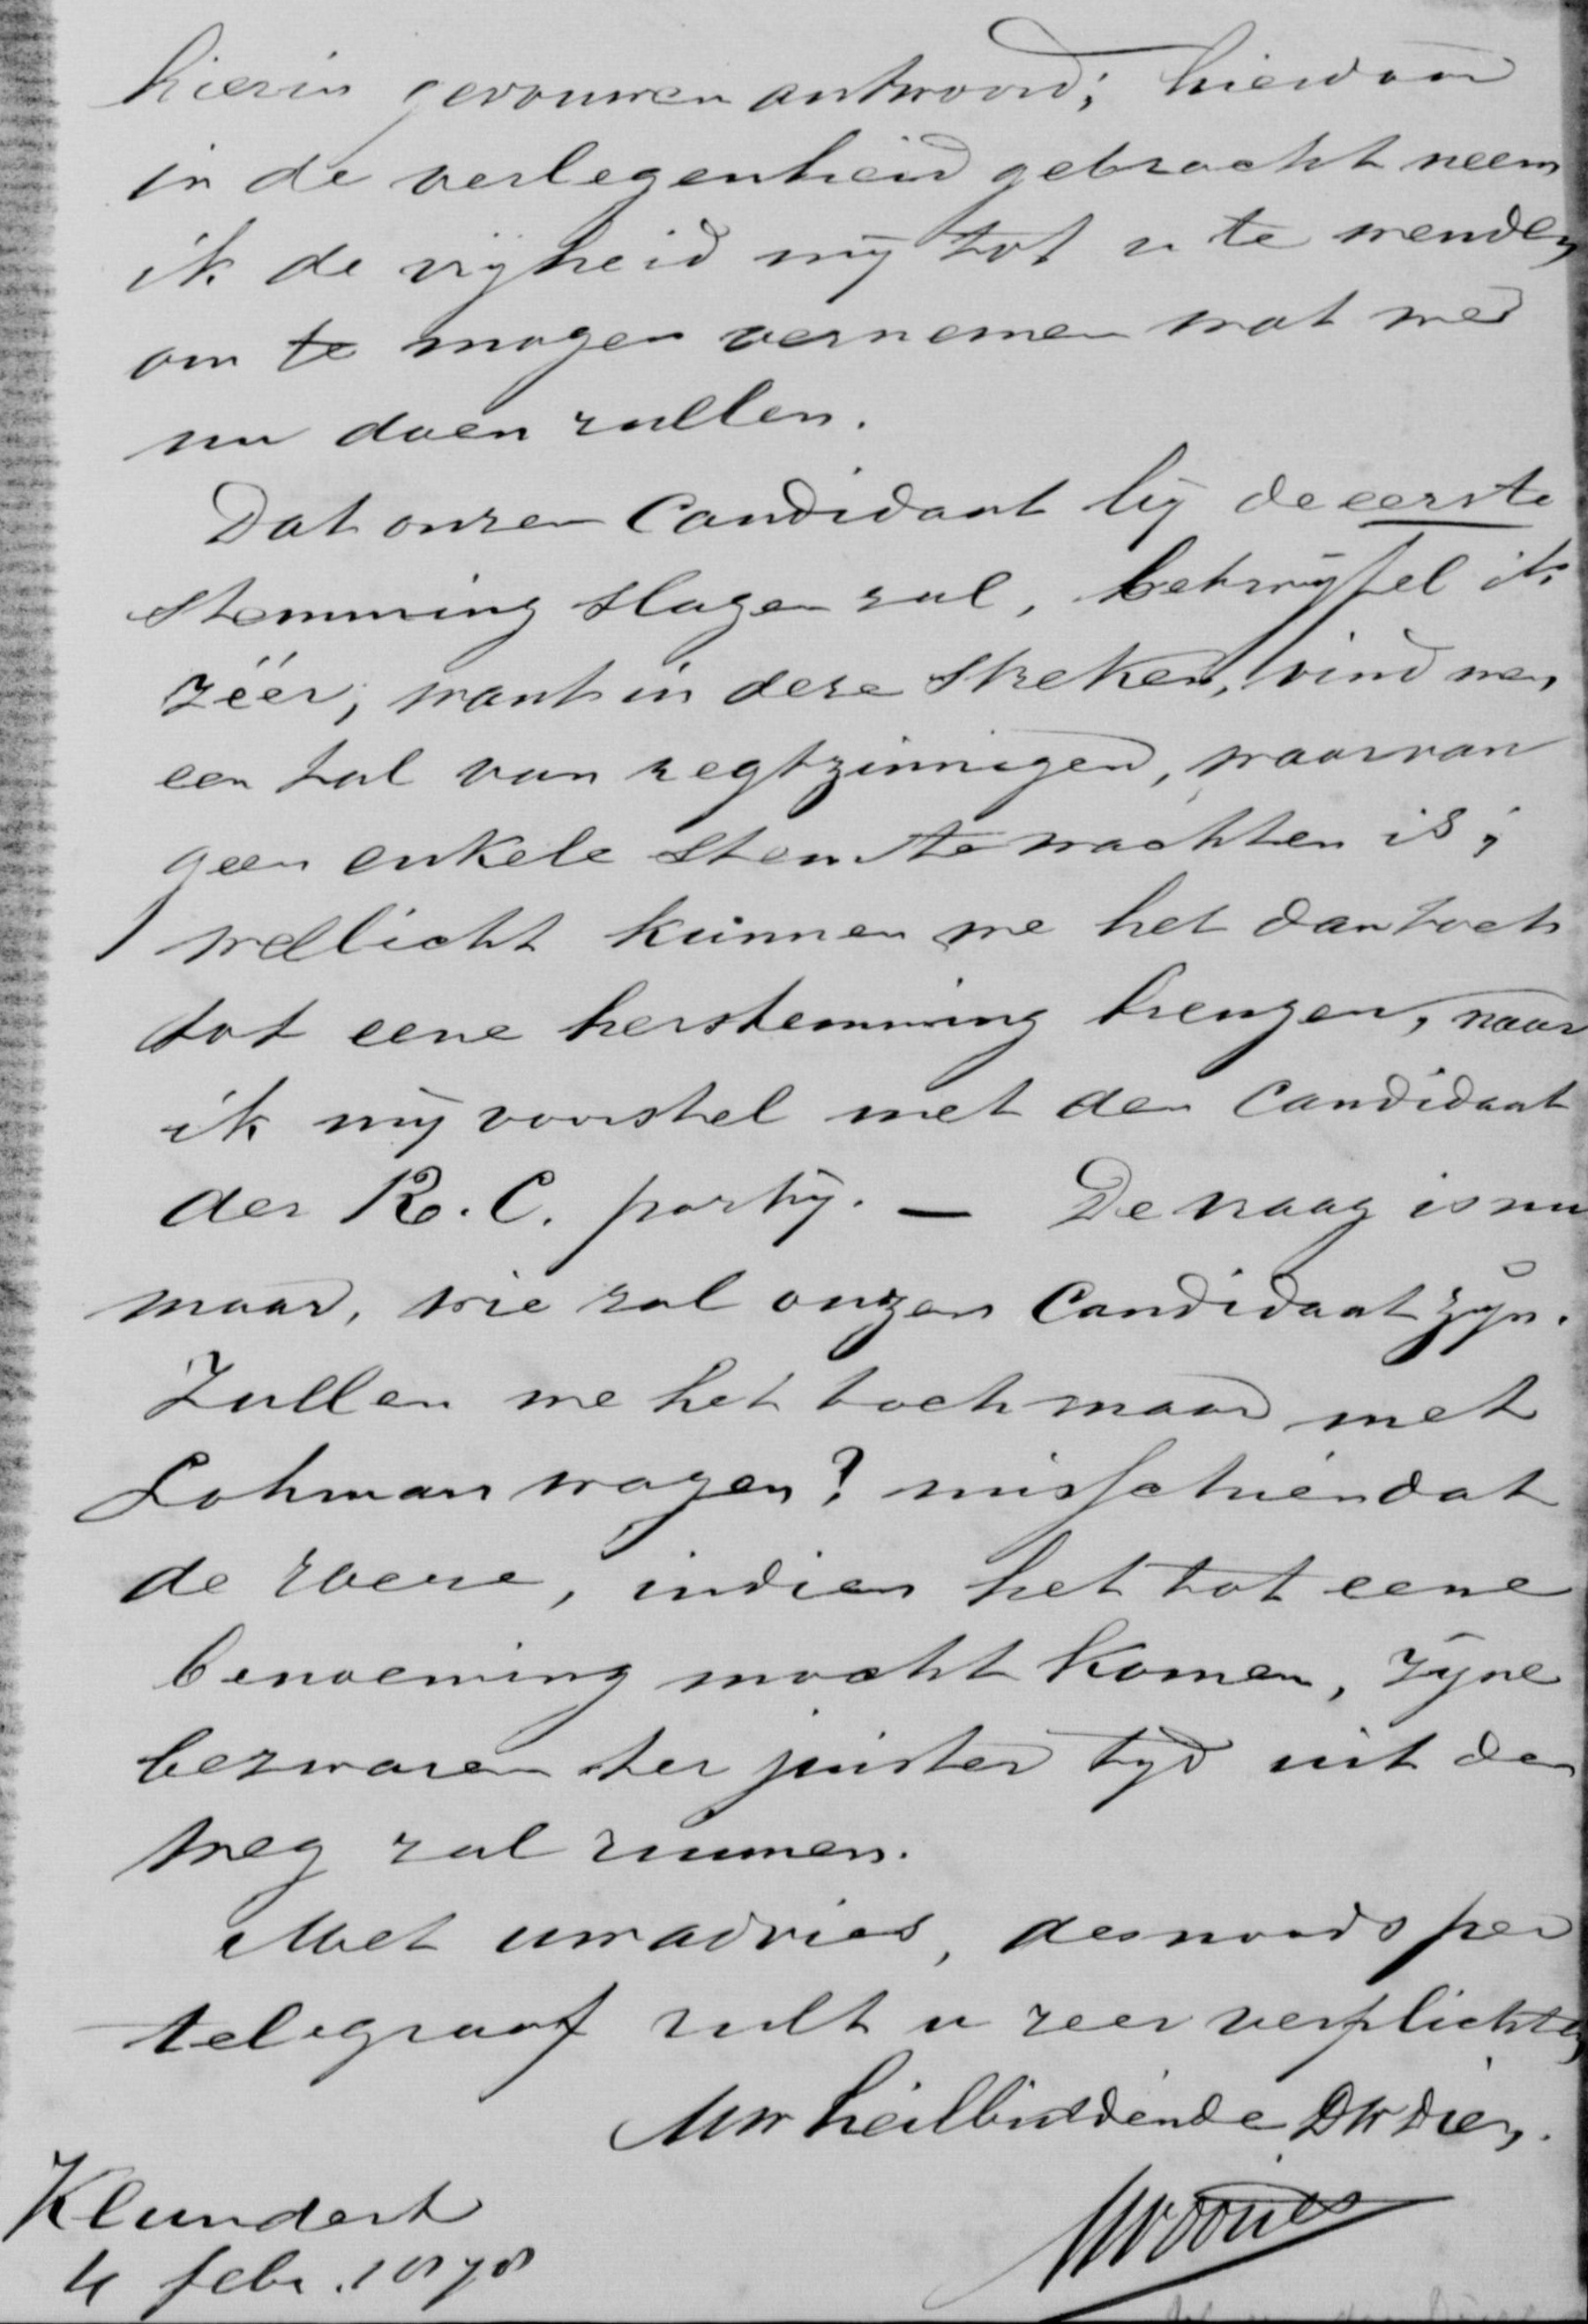 hierin gevouwen antwoord; hierdoor
in de verlegenheid gebracht neem
ik de vrijheid mij tot u te wenden
om te mogen vernemen wat we
nu doen zullen.
Dat onzen Candidaat bij de eerste
stemming slagen zal, betwijfel ik
zéér, want in deze streken, vind men
een tal van regtzinnigen, waarvan
geen enkele stem te wachten is;
wellicht kunnen we het dan toch
tot eene herstemming brengen, naar
ik mij voorstel met den Candidaat
der R. C. partij. — De vraag is nu
maar, wie zal onzen Candidaat zijn.
Zullen we het toch maar met
Lohman wagen? misschien dat
de Heere, indien het tot eene
benoeming mocht komen, zijne
bezwaren ter juister tijd uit den
weg zal ruimen.
Met uw advies, desnoods per
telegraaf zult u zeer verplichten
Uw heilbiddende DW Dien.
Klundert
4 febr. 1878